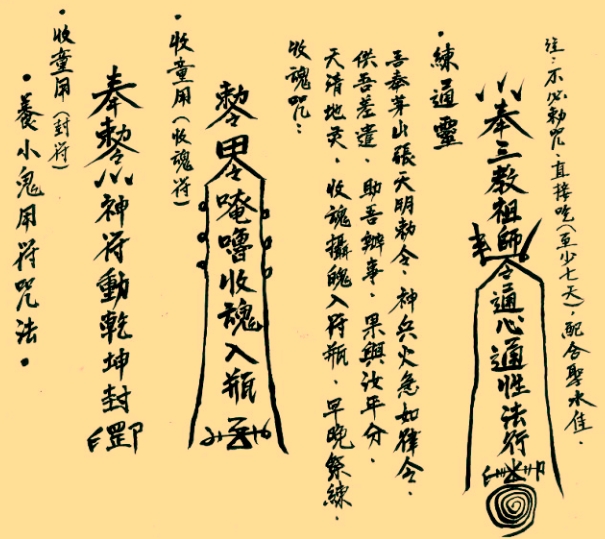 ·養小鬼用符咒法·
·收童用(封符)
奉勅令神符動乾坤封
·收童用(收魂符)
勅令唵嚕收魂入瓶
收魂咒:
天清地灵,收魂攝魄入符瓶,早晚祭練,
供吾差遣,助吾辦事,果與汝年分,
吾奉茅山張天明勅令,神兵火急如律令,
·練通靈
奉三教祖師令通心通性法行
注:不必勅咒,直接吃(至少七天),配合聖水佳.